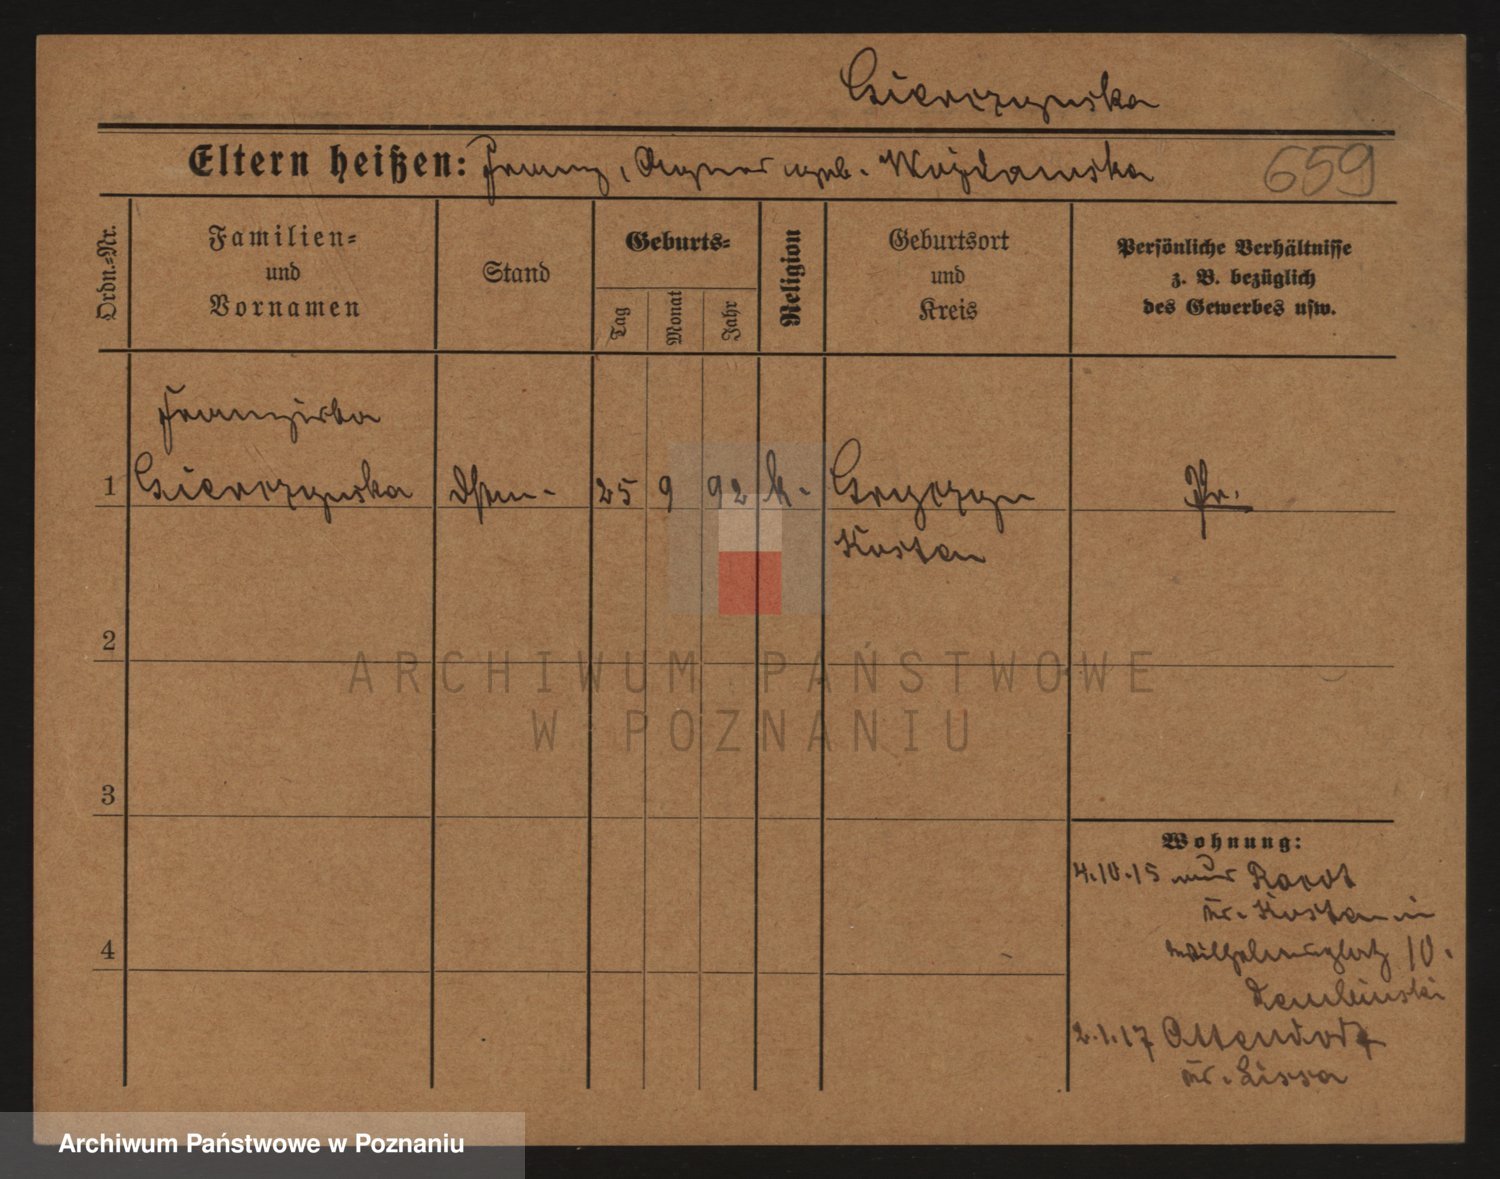 Gierczynska
Eltern heißen: Franz, Agnes geb. Wojdanska 659
Ordn.=Nr.
Familien=
und
Vornamen
Stand
Geburts=
Tag
Monat
Jahr
Religion
Geburtsort
und
Kreis
Persönliche Verhältnisse
z. B. bezüglich
des Gewerbes usw.
Franziska
1 Gierczynska 25 9 92 k. Gryzyn Pr.
Kosten
2
3
4
Wohnung:
4.10.15 aus
Kr. Kosten in
Wilhelmsplatz 10.
Dembinski
2.1.17 Attendorf
Kr. Lissa
ARCHIWUM PAŃSTWOWE
W POZNANIU
Archiwum Państwowe w Poznaniu